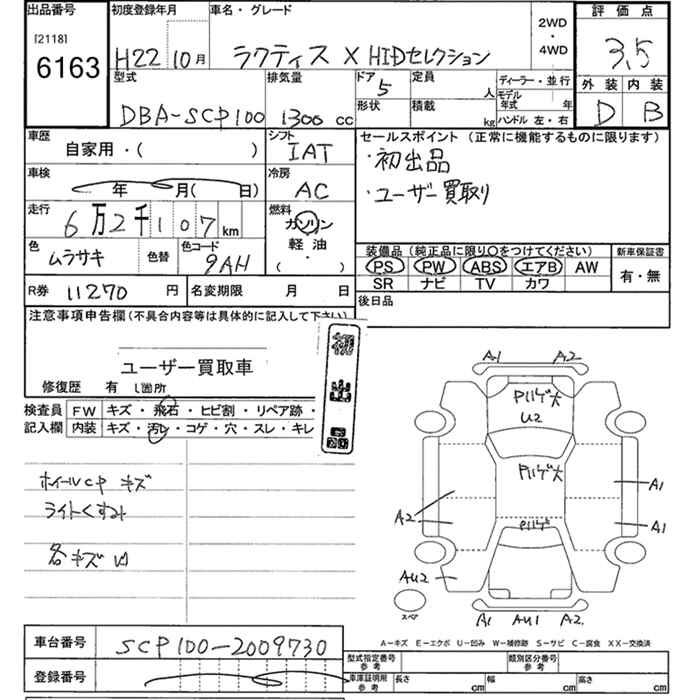 出品番号
[2118]
6163
初度登録年月
H22 10月
車名・グレード
ラクティス X HIDセレクション
2WD
・
4WD
評価点
3.5
外装 内装
D B
型式
DBA-SCP100
排気量
1300 cc
ドア
5
定員
人
形状
積載
kg
ディーラー・並行
モデル
年式 年
ハンドル 左・右
車歴
自家用・( )
シフト
IAT
セールスポイント (正常に機能するものに限ります)
・初出品
・ユーザー買取り
車検
年 月( 日)
冷房
AC
走行
6万2千107 km
燃料
ガソリン
軽油
( ・ )
色
ムラサキ
色替
色コード
9AH
装備品(純正品に限り〇をつけてください)
PS PW ABS エアB AW
SR ナビ TV カワ
新車保証書
有・無
R券 11270 円
名変期限 月 日
後日品
注意事項申告欄(不具合内容等は具体的に記入して下さい)
ユーザー買取車
修復歴 有 し箇所
初出品
検査員
記入欄
FW キズ・飛石・ヒビ割・リペア跡・
内装 キズ・汚レ・コゲ・穴・スレ・キレ
ホイールCP キズ
ライトくすみ
各キズ凹
A1 A2
PハゲA大
U2
Pハゲ大
Pハゲ
A1
A2
A1
AU2
スペア
A1 AU1 A2
A-キズ E-エクボ U-凹み W-補修跡 S-サビ C-腐食 XX-交換済
車台番号
SCP100-2009730
登録番号
型式指定番号
参考
類別区分番号
参考
車庫証明用
参考
長さ cm
幅 cm
高さ cm